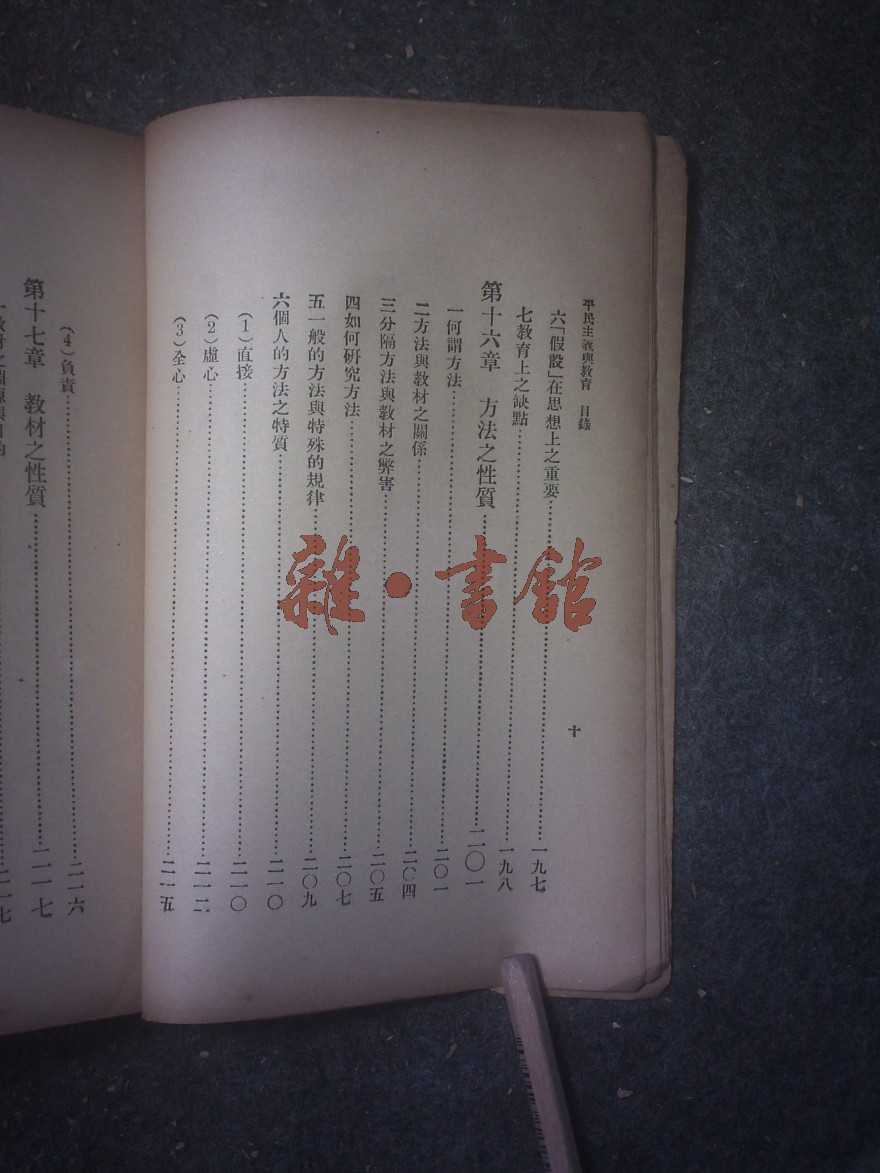 平民主義與教育　目錄
十
六「假設」在思想上之重要……一九七
七教育上之缺點……一九八
第十六章　方法之性質……二〇一
一何謂方法……二〇一
二方法與教材之關係……二〇四
三分隔方法與教材之弊害……二〇五
四如何研究方法……二〇七
五一般的方法與特殊的規律……二〇九
六個人的方法之特質……二一〇
(1)直接……二一〇
(2)虛心……二一二
(3)全心……二一五
(4)負責……二一六
第十七章　教材之性質……二一七
二一七
雜·書館